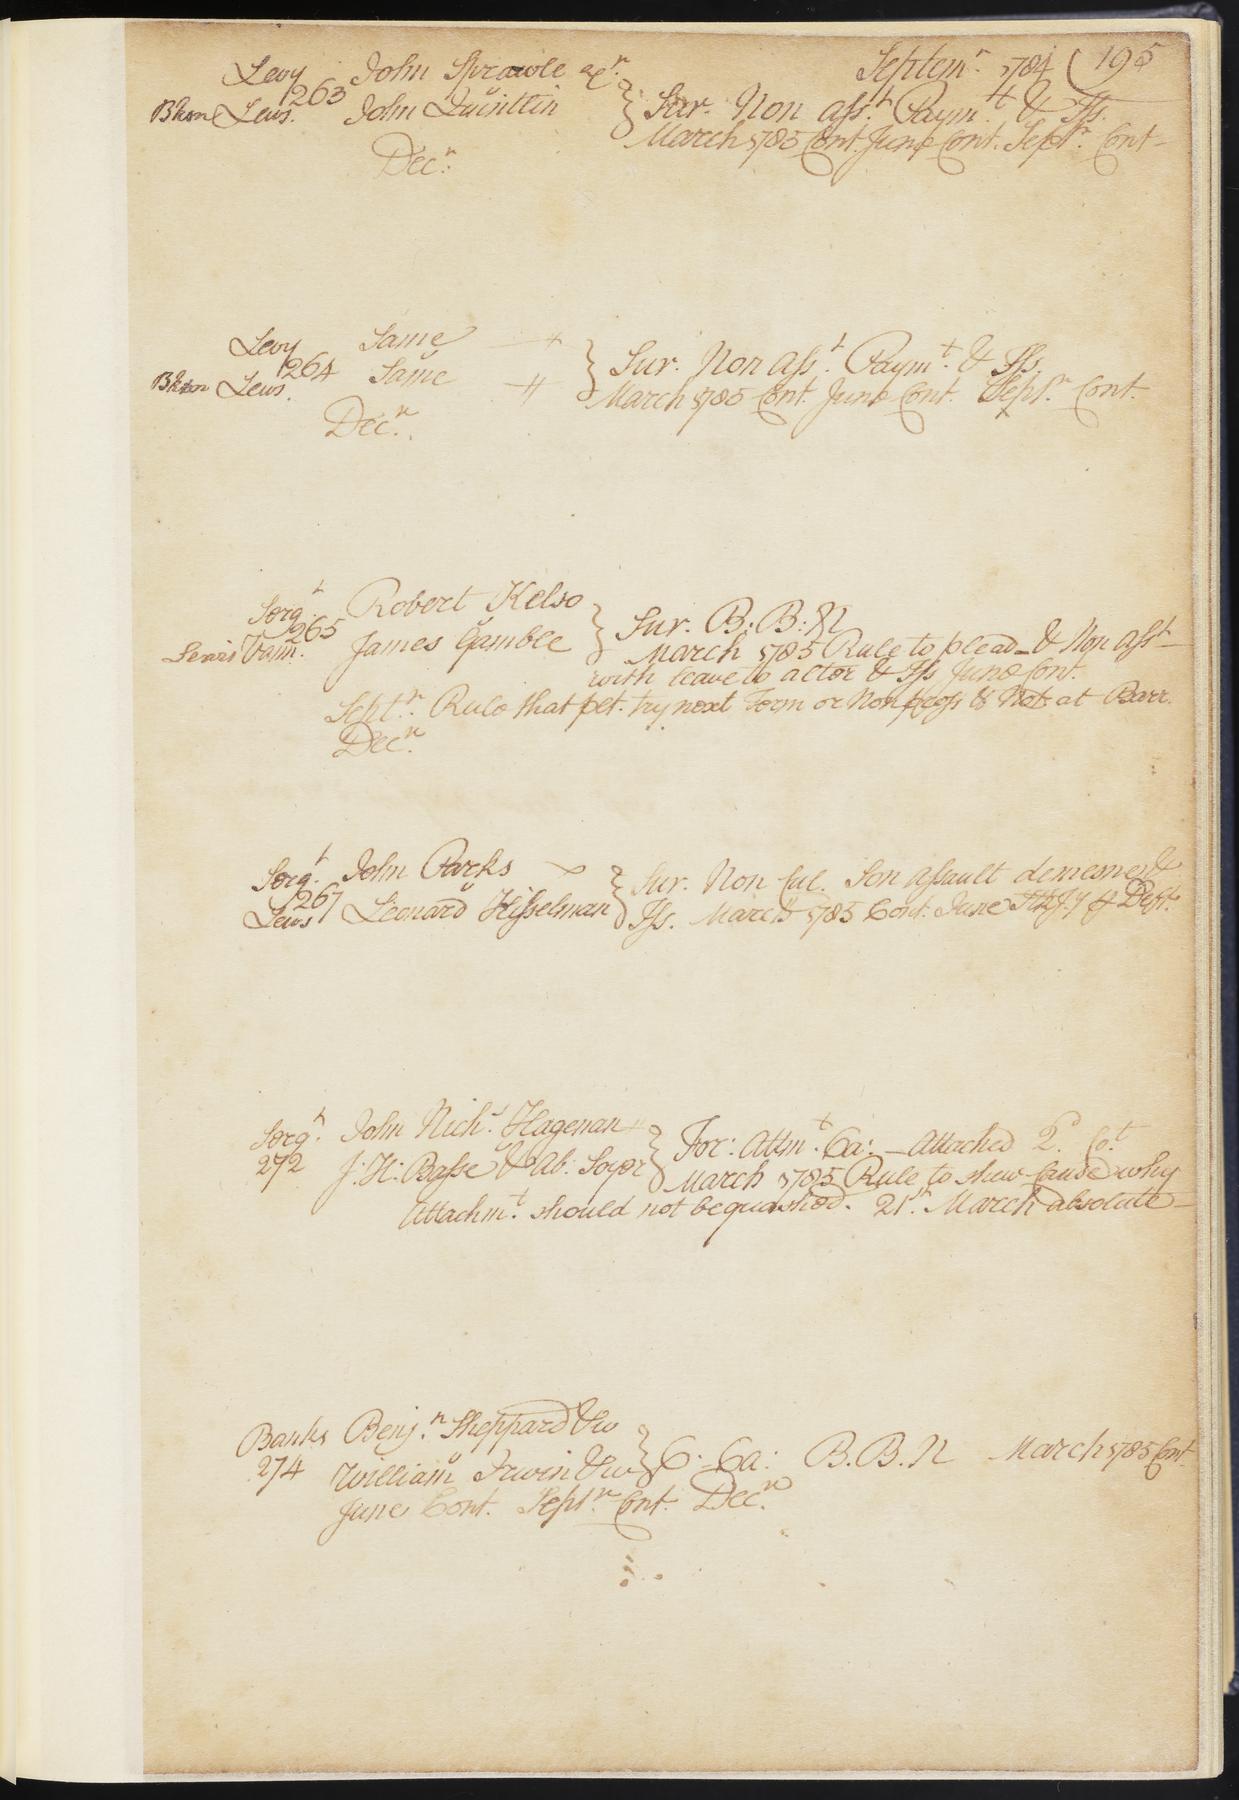 Septemr. 1784 (195
Levy John Sprowle exr.
263
Bkson Lews. John Quintlin } Sur. Non asst. Paymt. & Iss.
March 1785 Cont. June Cont. Septr. Cont-
Decr.
Levy Same
264
Bkson Lews. Same } Sur. Non asst. Paymt. & Iss.
March 1785 Cont. June Cont. Septr. Cont.
Decr.
Sergt. Robert Kelso
265
Vann. James Gamble } Sur. B: B: N
March 1785 Rule to plead - & Non asst-
with leave to alter & Iss June Cont.
Septr. Rule that plt. try next Term or Non pross & Not. at Barr.
Decr.
Sergt. John Parks
267
Lews Leonard Hisselman } Sur. Non Cul. Son assault demesne &
Iss. March 1785 Cont. June
Sergt. John Nichs. Hagenan
272 J: H: Basse & Ab: Soyer } For: Attmt. Ca: - Attached
March 1785 Rule to shew Cause why
Attachmt. should not be quashed. 21st. March absolute-
Banks Benjn. Sheppard & ux
274 William Irwin & ux } C: Ca: B. B. N March 1785 Cont.
June Cont. Septr. Cont. Decr.